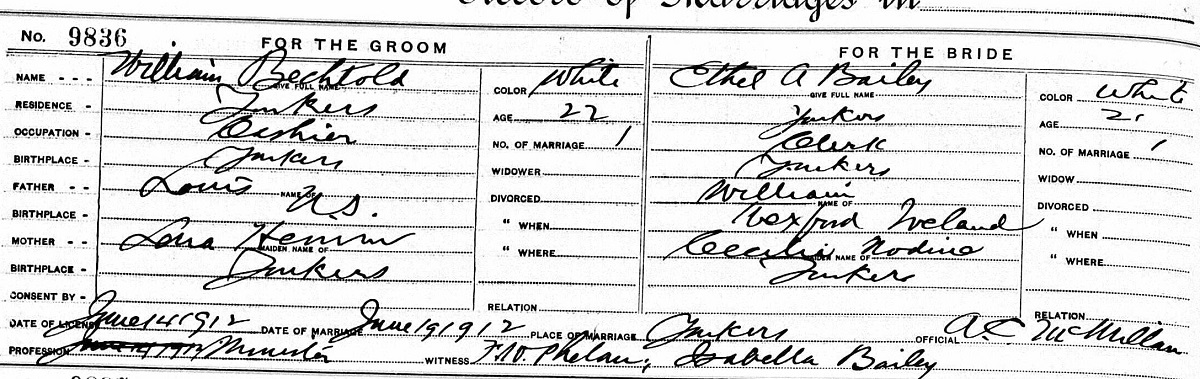 Record of Marriages in
No. 9836 FOR THE GROOM FOR THE BRIDE
NAME - - - William Bechtold GIVE FULL NAME COLOR White Ethel A Bailey GIVE FULL NAME COLOR White
RESIDENCE - Yonkers AGE 22 Yonkers AGE 21
OCCUPATION - Cashier NO. OF MARRIAGE 1 Clerk NO. OF MARRIAGE 1
BIRTHPLACE - Yonkers WIDOWER Yonkers WIDOW
FATHER - - Louis NAME OF DIVORCED William NAME OF DIVORCED
BIRTHPLACE - U.S. " WHEN Wexford Ireland " WHEN
MOTHER - - MAIDEN NAME OF " WHERE Cecelia Nodine MAIDEN NAME OF " WHERE
BIRTHPLACE - Yonkers Yonkers
CONSENT BY - RELATION RELATION
DATE OF LICENSE June 14 1912 DATE OF MARRIAGE June 19 1912 PLACE OF MARRIAGE Yonkers OFFICIAL A.C. McMillan
PROFESSION June 19 1912 Minister WITNESS Phelan, Isabella Bailey